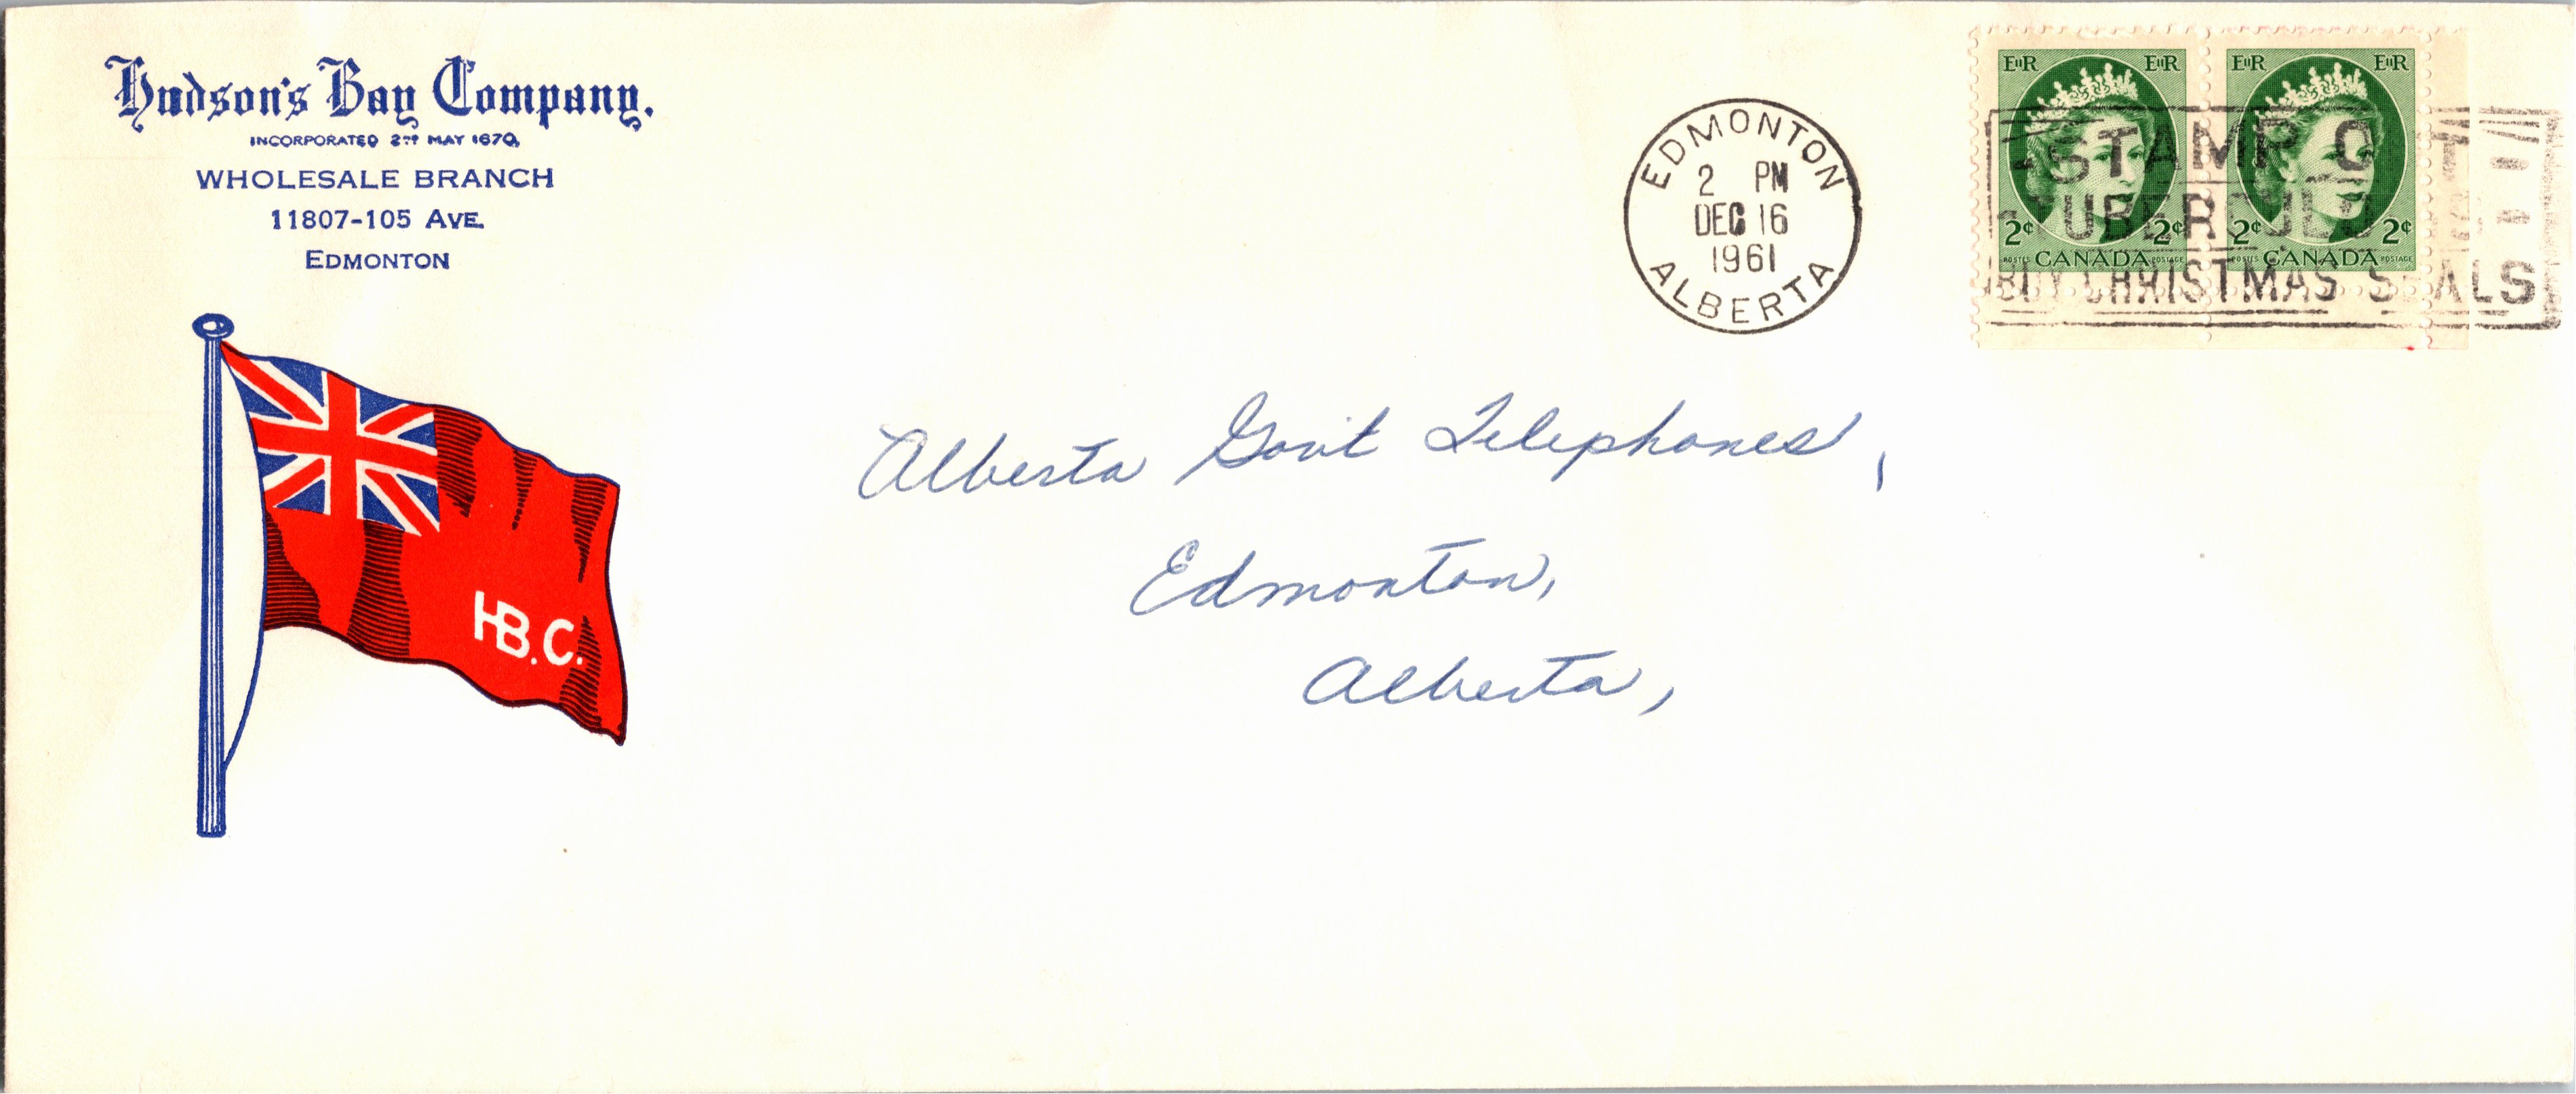 Hudson's Bay Company.
INCORPORATED 2ND MAY 1670.
WHOLESALE BRANCH
11807-105 AVE.
EDMONTON
H.B.C.
EDMONTON
2 PM
DEC 16
1961
ALBERTA
EIIR EIIR
2¢ 2¢
POSTES CANADA POSTAGE
EIIR EIIR
2¢ 2¢
POSTES CANADA POSTAGE
STAMP O
TUBERCULO
BUY CHRISTMAS SEALS
Alberta Gov't Telephones,
Edmonton,
Alberta,